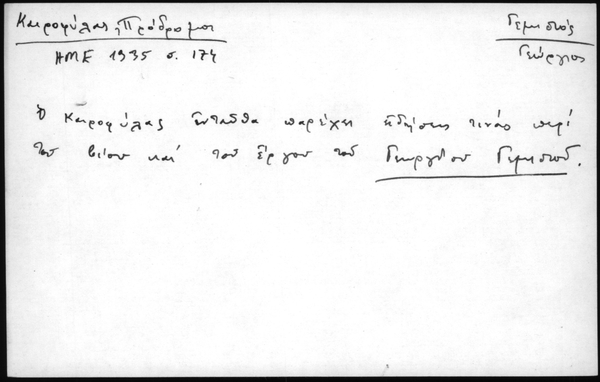 Καιροφύλας, Πρόδρομοι
ΗΜΕ 1935 σ. 174
Γεμιστός
Γεώργιος
Ὁ Καιροφύλας ἐνταῦθα παρέχει εἰδήσεις τινάς περί
τοῦ βίου καί τοῦ ἔργου τοῦ Γεωργίου Γεμιστοῦ.